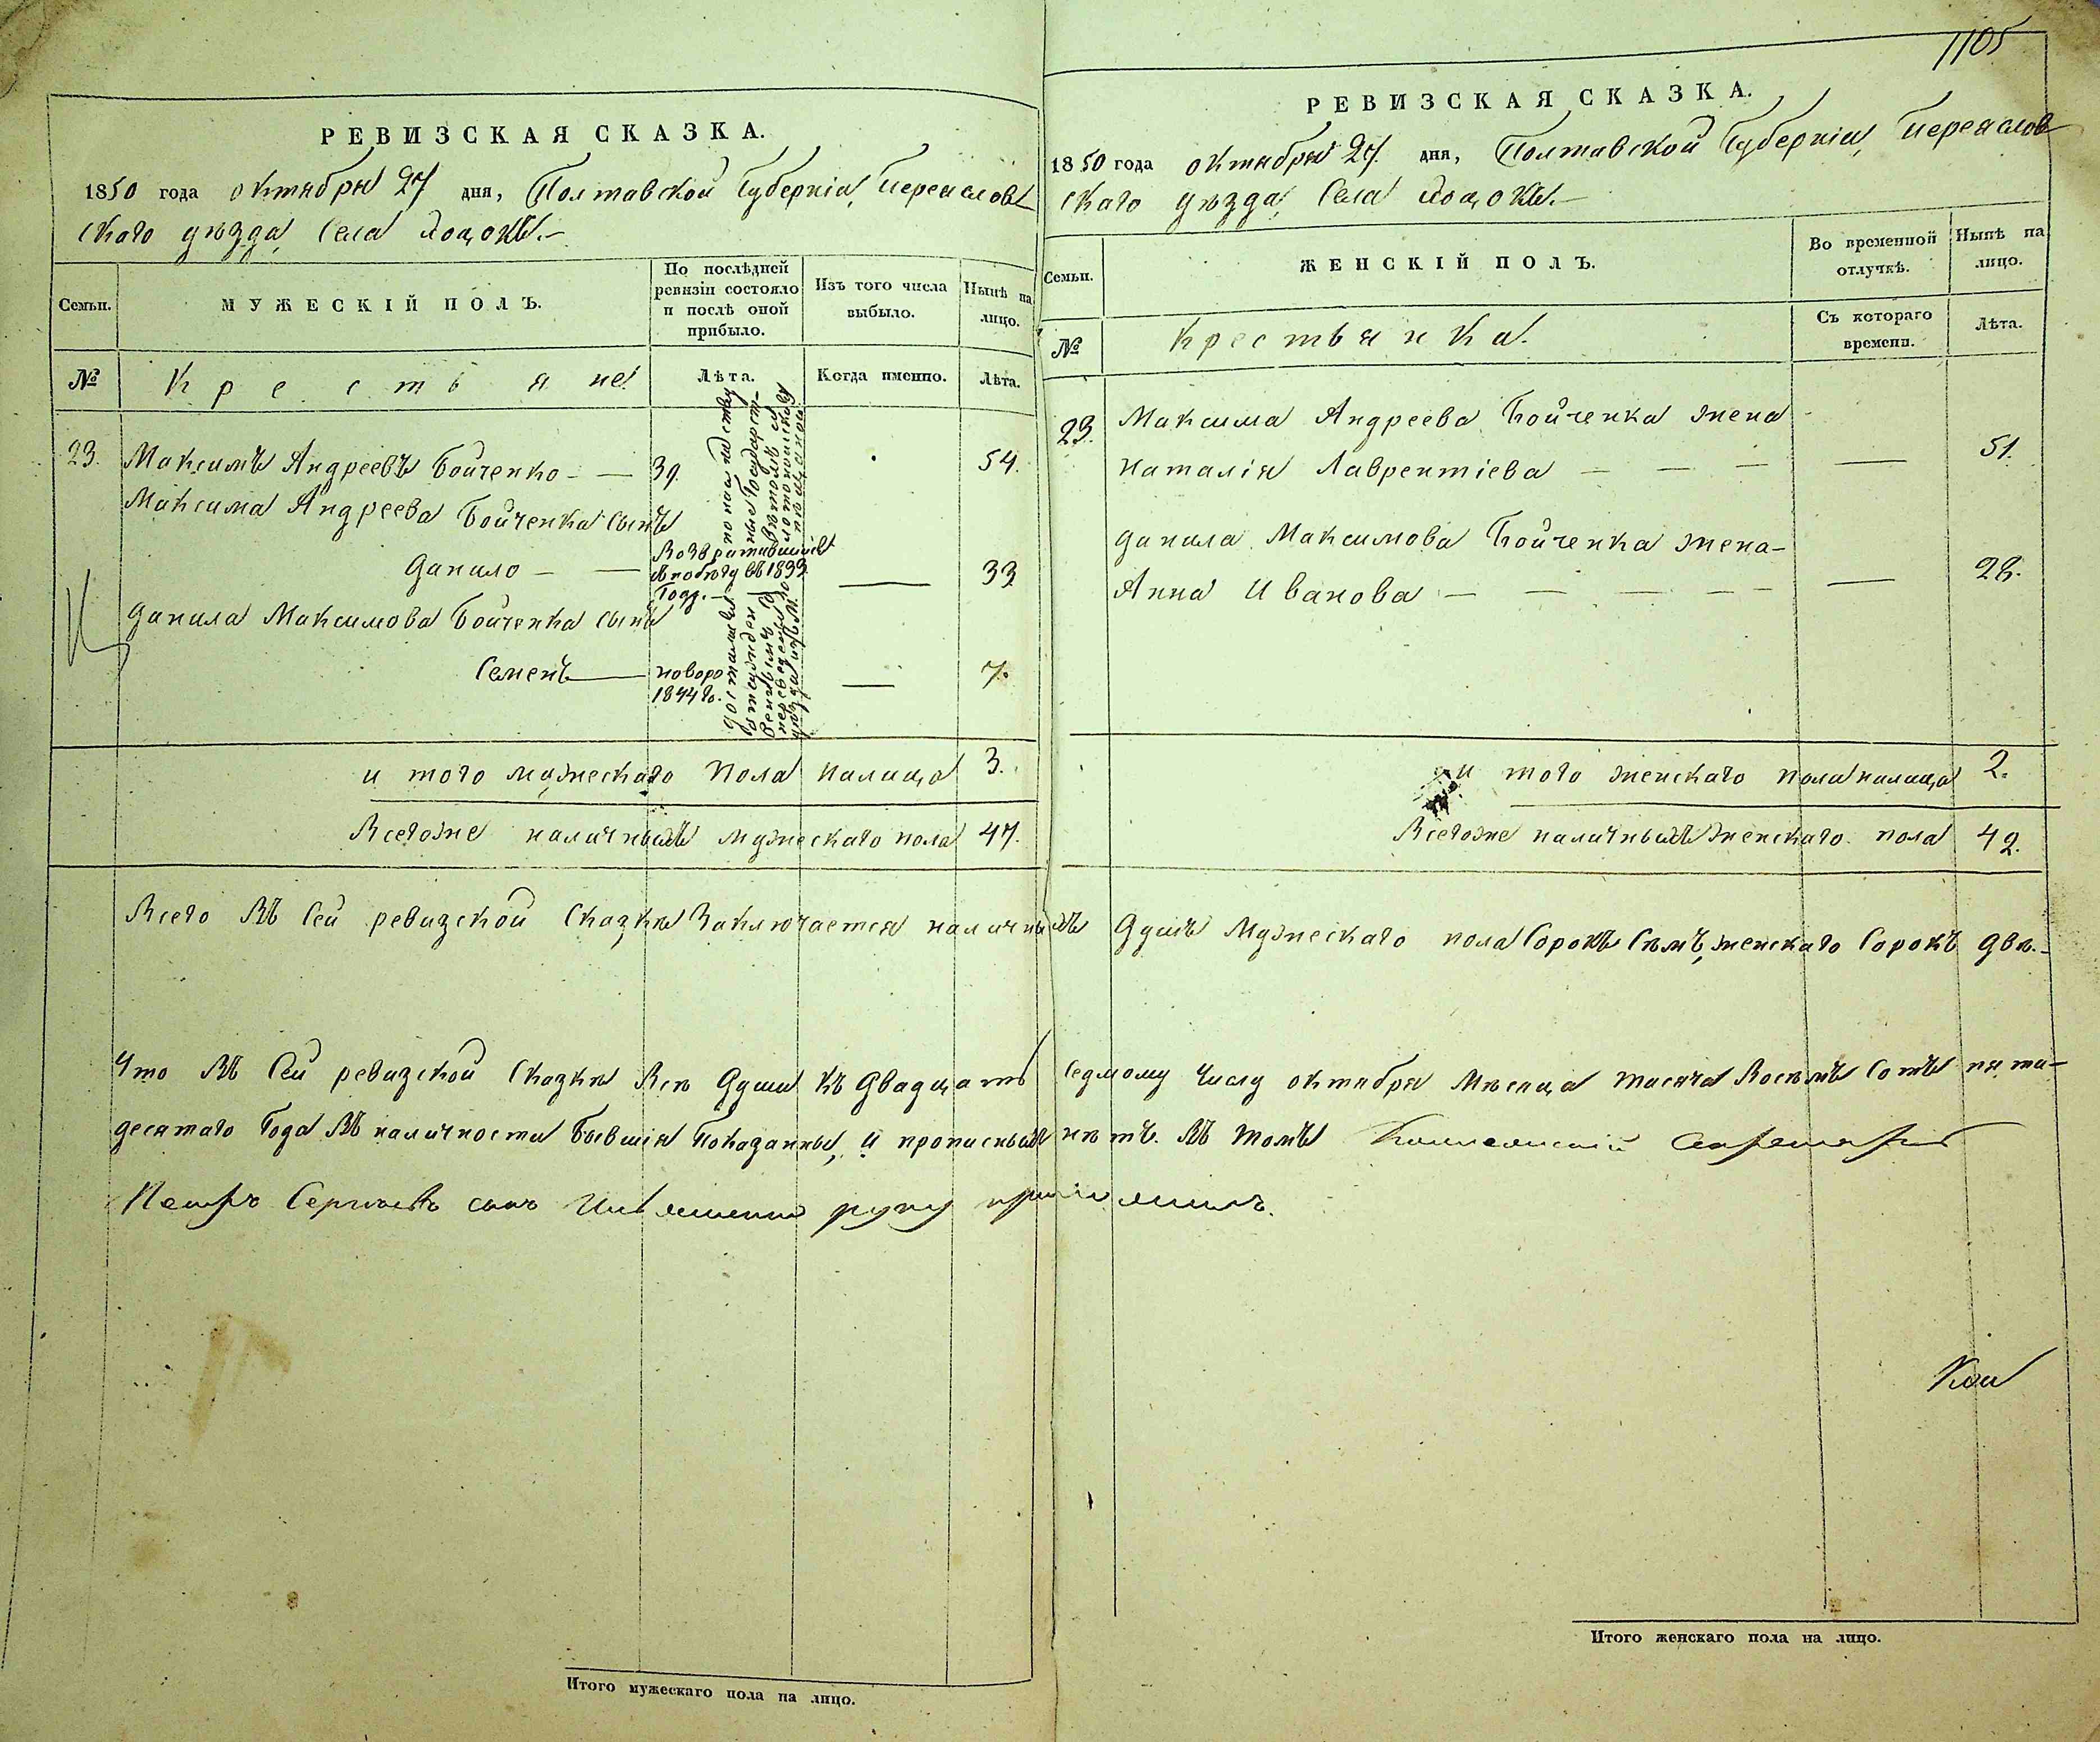 РЕВИЗСКАЯ СКАЗКА.
1850 года октября 27 дня, Полтавской Губерніи, Переяслов
скаго уѣзда, Села
Семьи.
МУЖЕСКІЙ ПОЛЪ.
По послѣдней ревизіи состояло и послѣ оной прибыло.
Изъ того числа выбыло.
Нынѣ на лицо.
№
Крестьяне
Лѣта.
Когда именно.
Лѣта.
23. Максимъ Андреевъ Бойченко — 39. 54.
Максима Андреева Бойченка сынъ
Данило — Возвратившійся
въ 1833 33
Году.
Данила Максимова Бойченка сынъ
Семенъ — новоро 7.
1844 го.
и того мужескаго пола налицо 3.
Всегоже наличныхъ мужескаго пола 47.
Итого мужескаго пола на лицо.
1105
РЕВИЗСКАЯ СКАЗКА.
1850 года октября 27. дня, Полтавской Губерніи, Переяслов
скаго уѣзда, Села
Семьи.
ЖЕНСКІЙ ПОЛЪ.
Во временной отлучкѣ.
Нынѣ на лицо.
№
Крестьянка.
Съ котораго времени.
Лѣта.
23. Максима Андреева Бойченка жена
Наталія Лаврентіева — — — — 51.
Данила Максимова Бойченка жена
Анна Иванова — — — — — 28.
и того женскаго пола налицо 2.
Всегоже наличныхъ женскаго пола 42.
Всего Въ Сей ревизской Сказкѣ Заключается наличныхъ Душъ Мужескаго пола Сорокъ Сѣмъ, женскаго Сорокъ двѣ.
Что Въ Сей ревизской Сказкѣ Всѣ Души къ Двадцать седмому Числу октября Мѣсяца тысяча Восѣмъ Сотъ пяти-
десятаго Года Въ наличности Бывшія Показанны, и прописныхъ нѣтъ. Въ томъ Секретарь
Петръ Сергѣевъ сынъ руку приложилъ.
Итого женскаго пола на лицо.